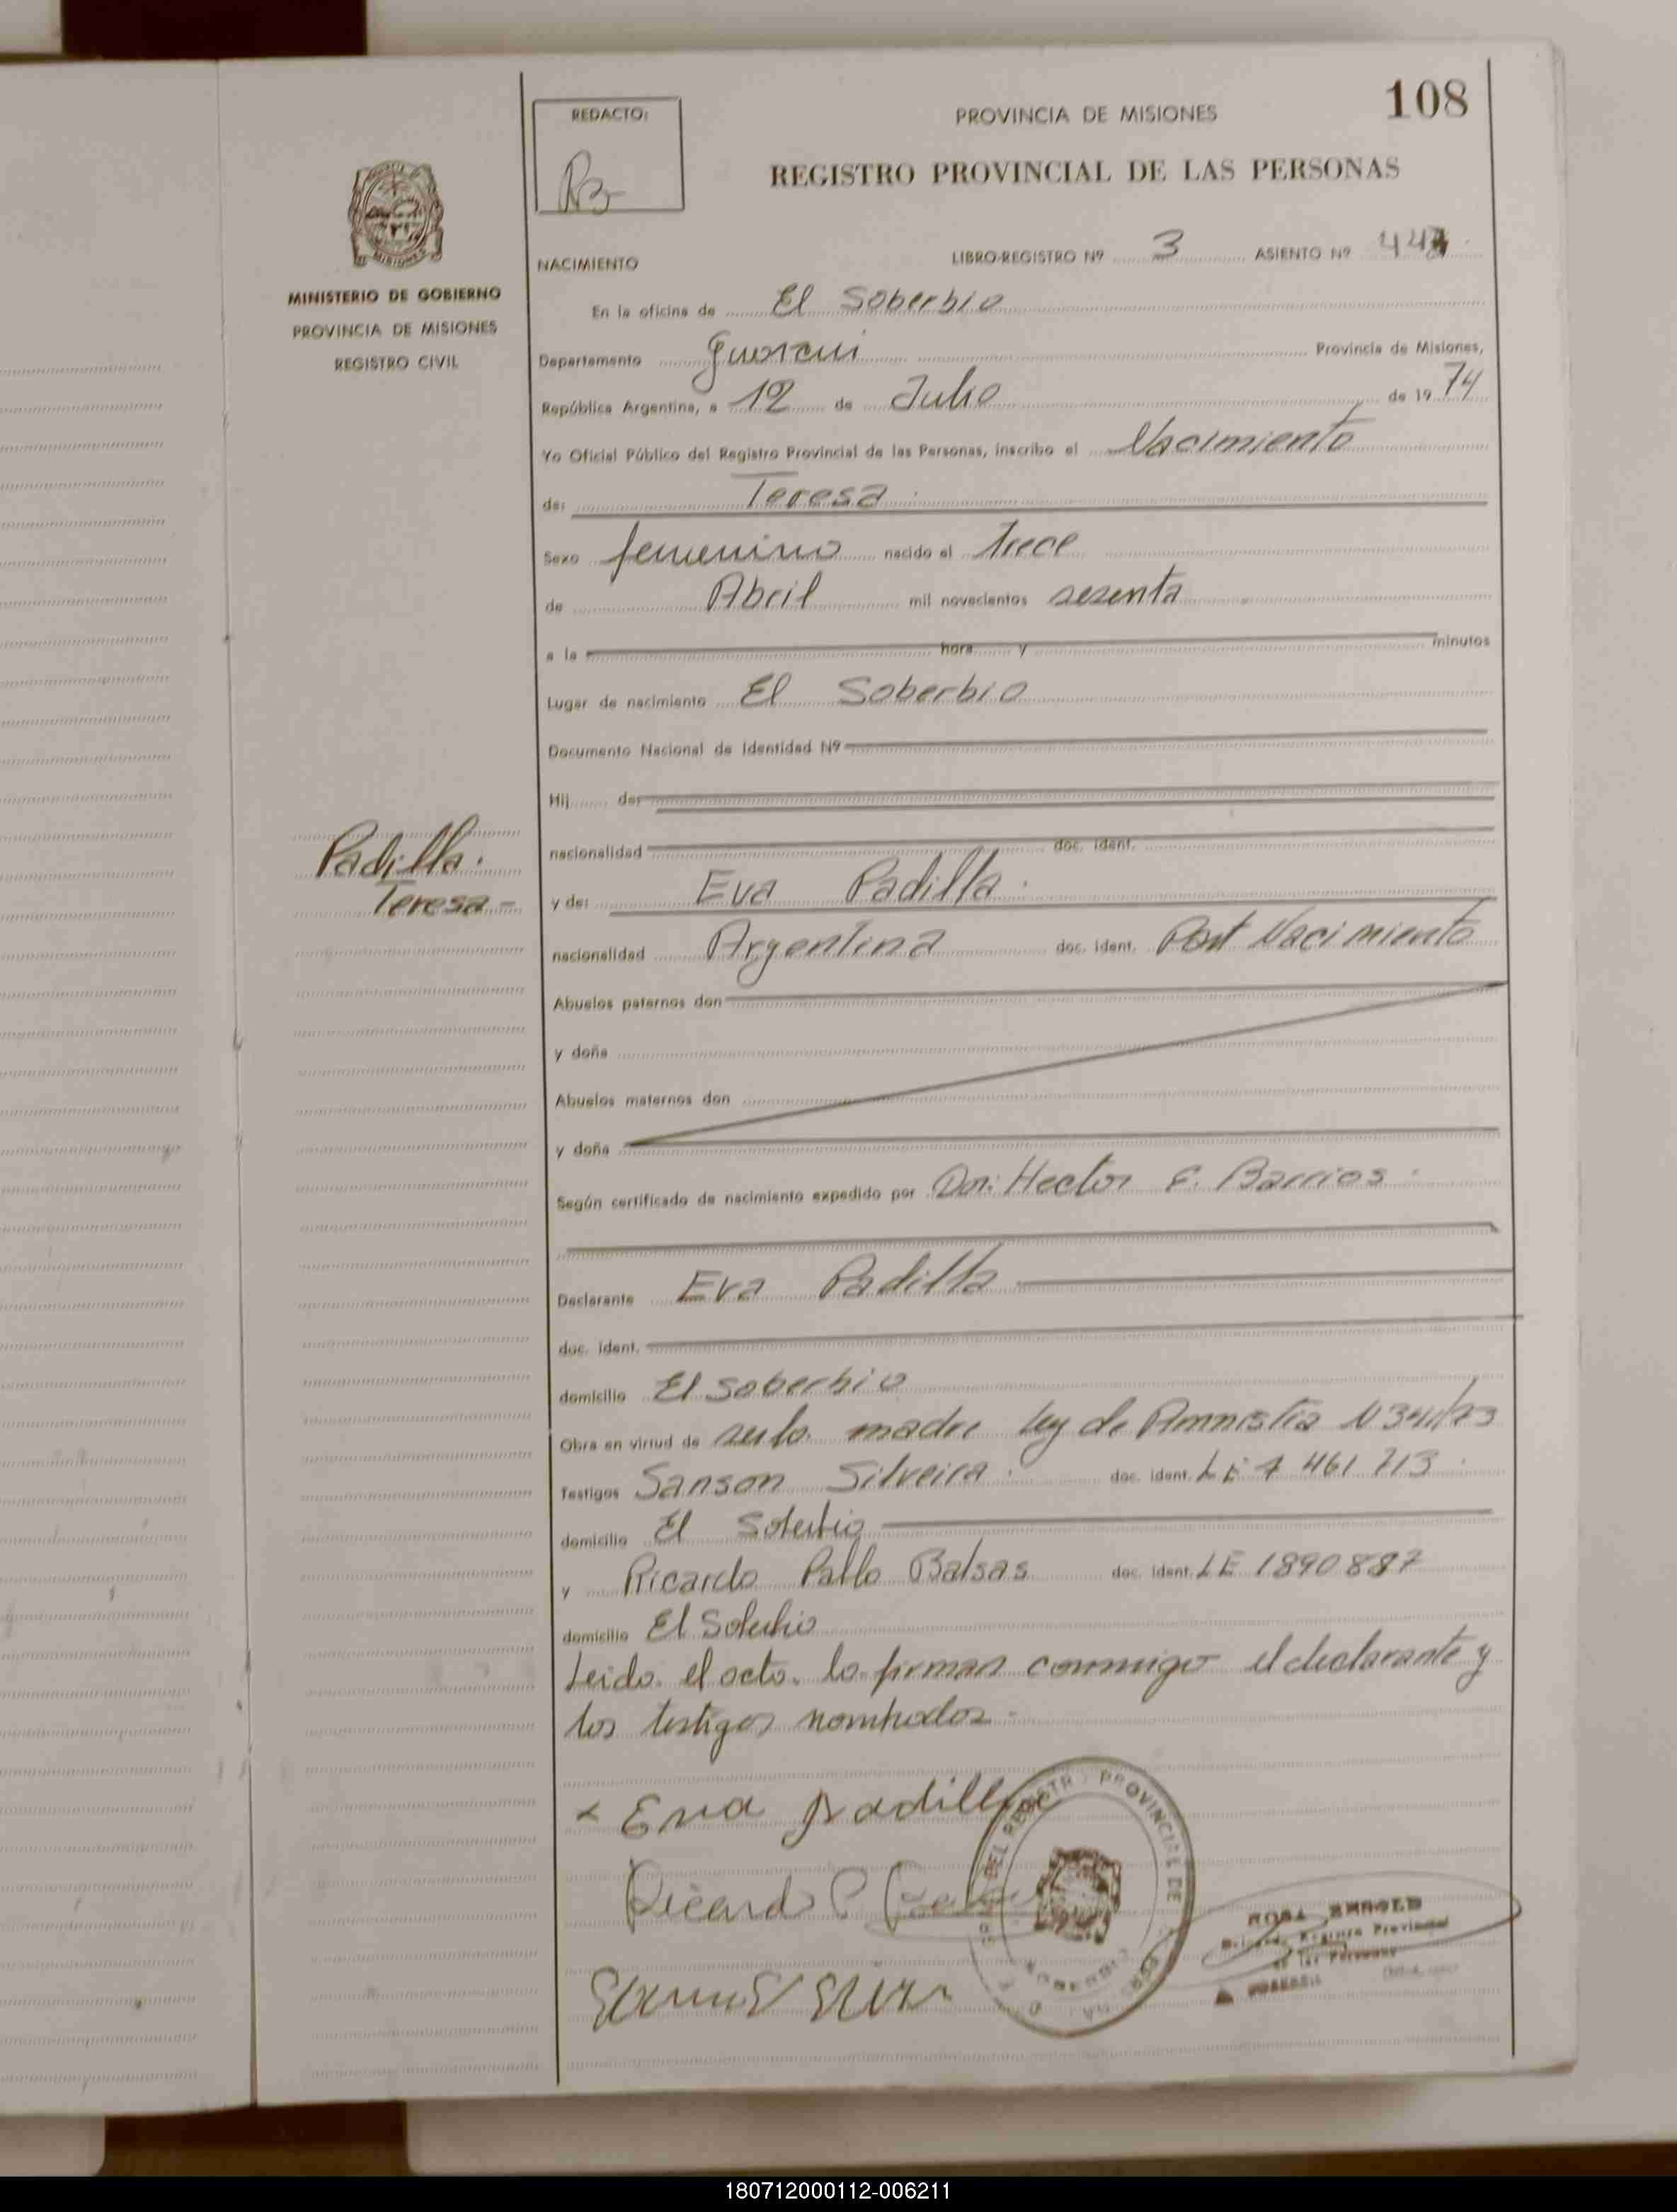 108
REDACTO:
PROVINCIA DE MISIONES
REGISTRO PROVINCIAL DE LAS PERSONAS
MINISTERIO DE GOBIERNO
PROVINCIA DE MISIONES
REGISTRO CIVIL
NACIMIENTO
LIBRO-REGISTRO Nº 3 ASIENTO Nº
En la oficina de El Soberbio
Departamento Guarani Provincia de Misiones,
República Argentina, a 12 de Julio de 1974
Yo Oficial Público del Registro Provincial de las Personas, inscribo el Nacimiento
de: Teresa
Sexo femenino nacido el trece
de Abril mil novecientos sesenta
a la hora y minutos
Lugar de nacimiento El Soberbio
Documento Nacional de Identidad Nº
Hij de:
nacionalidad doc. ident.
Padilla.
Teresa -
y de: Eva Padilla.
nacionalidad Argentina doc. ident. Nacimiento
Abuelos paternos don
y doña
Abuelos maternos don
y doña
Según certificado de nacimiento expedido por Hector E. Barrios
Declarante Eva Padilla
doc. ident.
domicilio El soberbio
Obra en virtud de ser la madre Ley de Amnistia
Testigos Sanson Silveira. doc. ident. 461 713
domicilio El Soberbio
y Ricardo Pablo Balsas doc. ident. LE 1890887
domicilio El Soberbio
Leido el acto lo firman conmigo el declarante y
los testigos nombrados
x Eva Padilla
Ricardo P
180712000112-006211